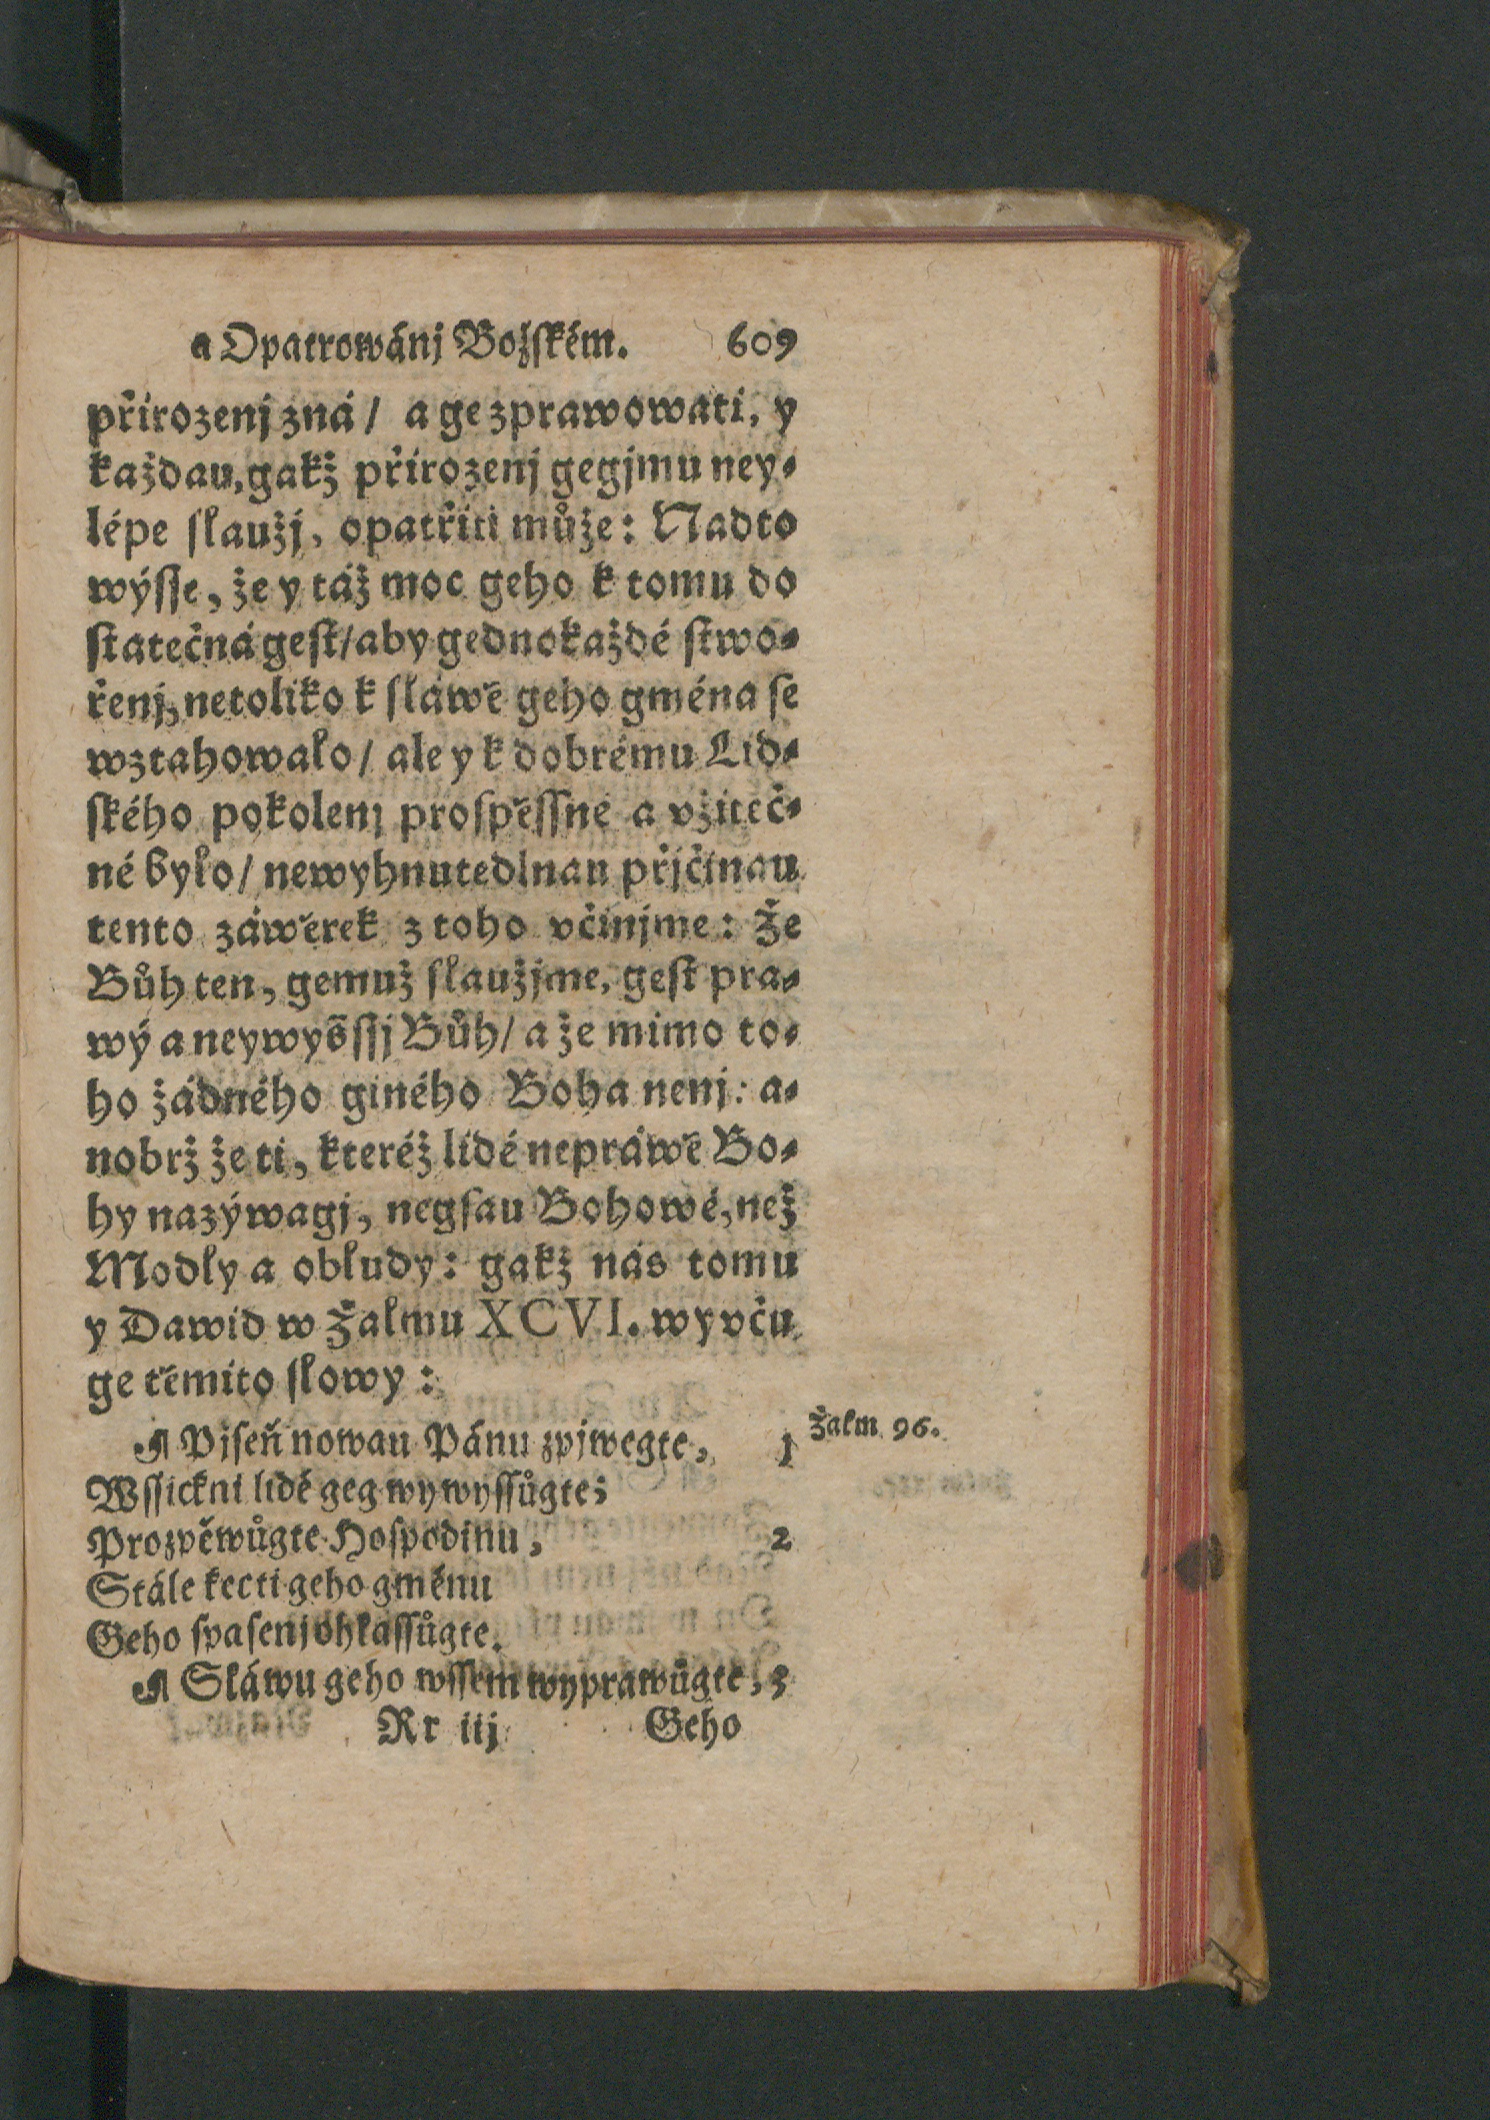 a Opatrowánj Božſkém. 609
přirozenj zná / a ge zprawowati, y
každau, gakž přirozenj gegjmu ney⸗
lépe ſlaužj, opatřiti může: Nadto
wýſſe, že y táž moc geho k tomu do
ſtatečná geſt/ aby gednokaždé ſtwo⸗
řenj, netoliko k ſláwě geho gména ſe
wztahowalo / ale y k dobrému Lid⸗
ſkého pokolenj proſpěſſné a vžiteč⸗
né bylo / newyhnutedlnau přjčinau
tento záwěrek z toho včinjme: Že
Bůh ten, gemuž ſlaužjme, geſt pra⸗
wý a neywyšſſj Bůh / a že mimo to⸗
ho žádného giného Boha nenj: a⸗
nobrž že ti, kteréž lidé nepráwě Bo⸗
hy nazýwagj, negſau Bohowé, než
Modly a obludy: gakž nás tomu
y Dawid w Žalmu XCVI. wyvču
ge těmito ſlowy:
¶ Pjſeň nowau Pánu zpjwegte, 1 Žalm 96.
Wſſickni lidé geg wywyſſůgte;
Prozpěwůgte Hoſpodinu, 2
Stále kecti geho gménu
Geho ſpaſenj ohlaſſůgte.
¶ Sláwu geho wſſem wyprawůgte, 3
Rr iij Geho